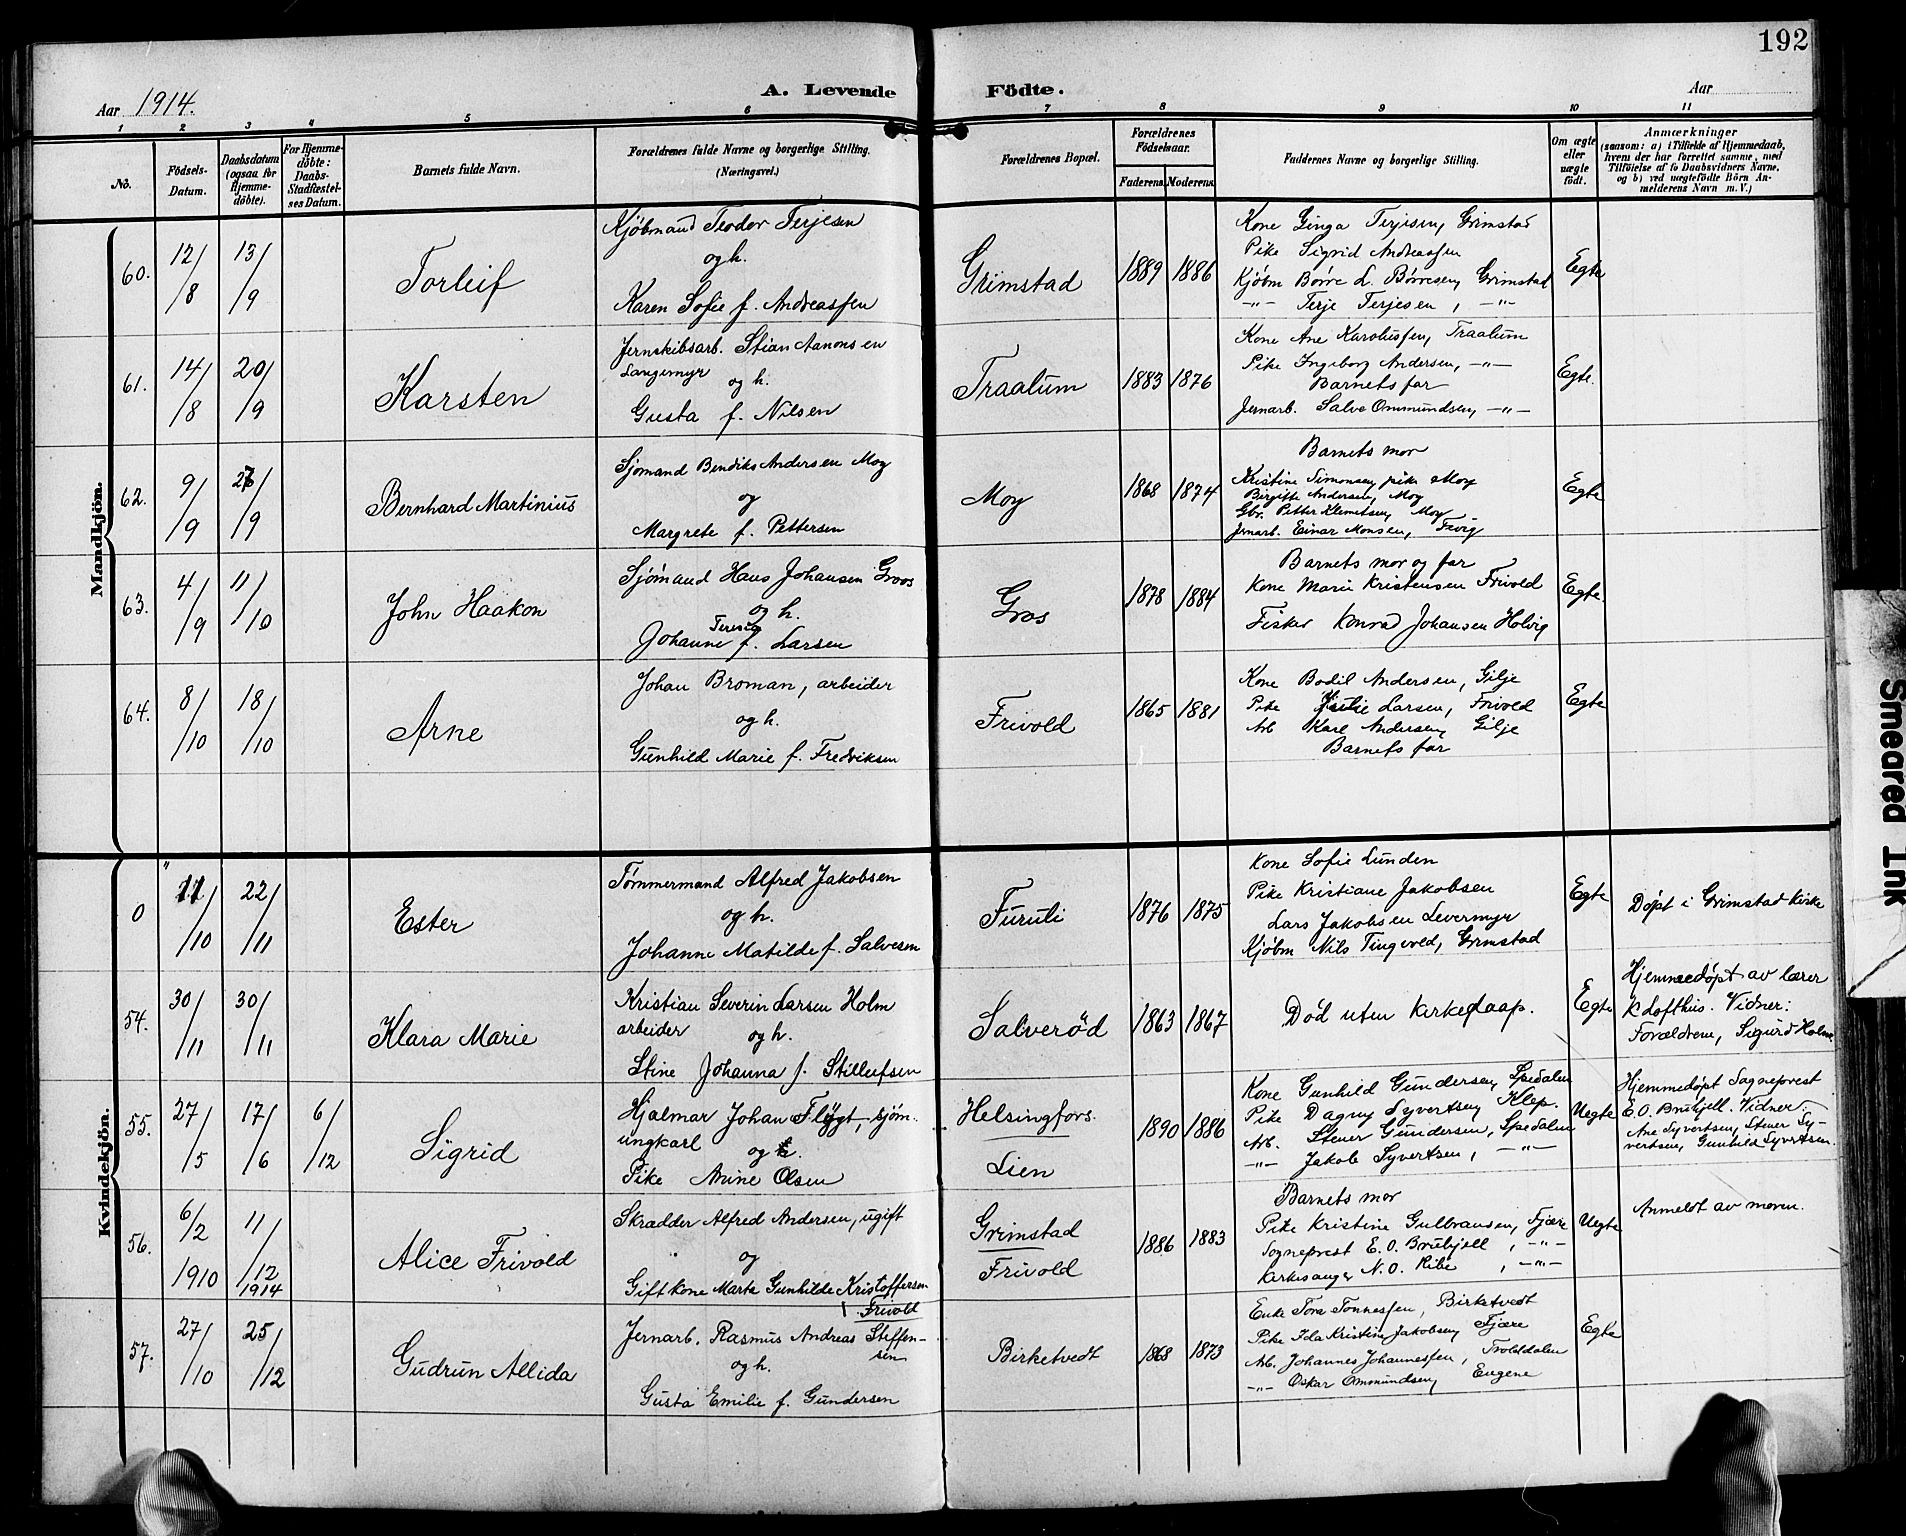 192
Aar 1914.
A. Levende Födte.
Aar
1 2 3 4 5 6 7 8 9 10 11
No.
Födsels-
Datum.
Daabsdatum
(ogsaa for
Hjemme-
döbte).
For Hjemme-
döbte:
Daabs-
Stadfæstel-
ses Datum.
Barnets fulde Navn.
Forældrenes fulde Navne og borgerlige Stilling.
(Næringsvei.)
Forældrenes Bopæl.
Forældrenes
Födselsaar.
Faderens. Moderens.
Faddernes Navne og borgerlige Stilling.
Om ægte
eller
uægte
födt.
Anmærkninger
(saasom: a) i Tilfælde af Hjemmedaab,
hvem der har forrettet samme, med
Tilföielse af to Daabsvidners Navne,
og b) ved uægtefödte Börn An-
melderens Navn m. V.)
Mandkjön.
60.
12/8
13/9
Torleif
Kjøbmand Teodor Terjesen
og h.
Karen Sofie f. Andreassen
Grimstad
1889 1886
Kone Ginga Terjesen, Grimstad
Pike Sigrid Andreassen
Kjøbm Børre L. Børresen, Grimstad
-"- Terje Terjesen, -"-
Egte
61.
14/8
20/9
Karsten
Jernskibsarb. Stian Aanonsen
Langemyr og h.
Gusta f. Nilsen
Traalum
1883 1876
Kone Ane Karolussen, Traalum
Pike Ingeborg Andersen, -"-
Barnets far
Jernarb. Salve Ommundsen, -"-
Egte.
62.
9/9
/9
Bernhard Martinius
Sjømand Bendiks Andersen Moy
og
Margrete f. Pettersen
Moy
1868 1874
Barnets mor
Kristine Simonsen, pike Moy
Birgitte Andersen, Moy
Gbr. Petter Klemetsen, Moy
Jernarb. Einar Monsen, Fevig
Egte
63.
4/9
11/10
John Haakon
Sjømand Hans Johansen Groos
og h.
Teresia
Johanne f. Larsen
Gros
1878 1884
Barnets mor og far
Kone Marie Kristensen Frivold
Fisker Konrad Johansen Holvig
Egte.
64.
8/10
18/10
Arne
Johan Broman, arbeider
og h.
Gunhild Marie f. Fredriksen
Frivold
1865 1881
Kone Bodil Andersen, Gilje
Pike Larsen, Frivold
Arb Karl Andersen, Gilje
Barnets far
Egte
Kvindekjön.
0
11/10
22/11
Ester
Tømmermand Alfred Jakobsen
og h.
Johanne Matilde f. Salvesen
Furuli
1876 1875
Kone Sofie Lunden
Pike Kristiane Jakobsen
Lars Jakobsen Levermyr
Kjøbm Nils Tingsved, Grimstad
Egte
Døpt i Grimstad Kirke
54.
30/11
30/11
Klara Marie
Kristian Severin Larsen Holm
arbeider og h.
Stine Johanna f. Stillufsen
Salverød
1863 1867
Død uten kirkedaap.
Egte
Hjemmedøpt av lærer
K Lofthus. Vidner:
Forældrene, Sigurd Holm.
55.
27/5
17/6
6/12
Sigrid
Hjalmar Johan Fløgt, sjøm.
ungkarl og
Pike Anine Olsen
Helsingfors.
Lien
1890 1886
Kone Gunhild Gundersen, Spedalen
Pike Dagny Syvertsen, Klep.
Arb. Stener Gundersen, Spedalen
-"- Jakob Syvertsen, -"-
Uegte
Hjemmedøpt Sogneprest
E. O. Brubjell. Vidner:
Ane Syvertsen, Stener Sy-
vertsen, Gunhild Syvertsen.
56.
6/2
1910
11/12
1914
Alice Frivold
Skrædder Alfred Andersen, ugift
og
Gift kone Marta Gunhilde Kristoffersen
Frivold
Grimstad
Frivold
1886 1883
Barnets mor
Pike Kristine Gulbransen, Fjære
Sogneprest E. O. Brubjell, -"-
Kirkesanger N. O. Ribe, -"-
Uegte
Anmeldt av moren.
57.
27/10
25/12
Gudrun Allida
Jernarb. Rasmus Andreas Steffen-
sen
og h.
Gusta Emilie f. Gundersen
Birketvedt
1868 1873
Enke Tora Tønnessen, Birketvedt
Pike Ida Kristine Jakobsen, Fjære
Arb. Johannes Johannessen, Trolddalen
-"- Oskar Ommundsen, Eugene
Egte
Smeared Ink